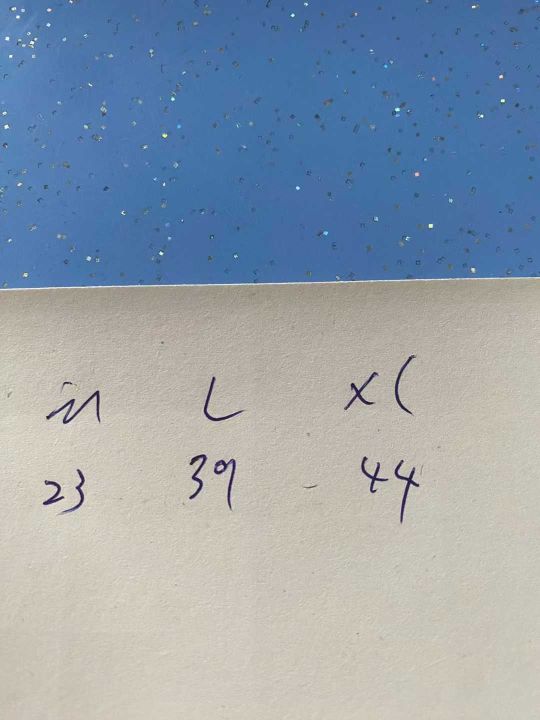 M L XL
23 39 44